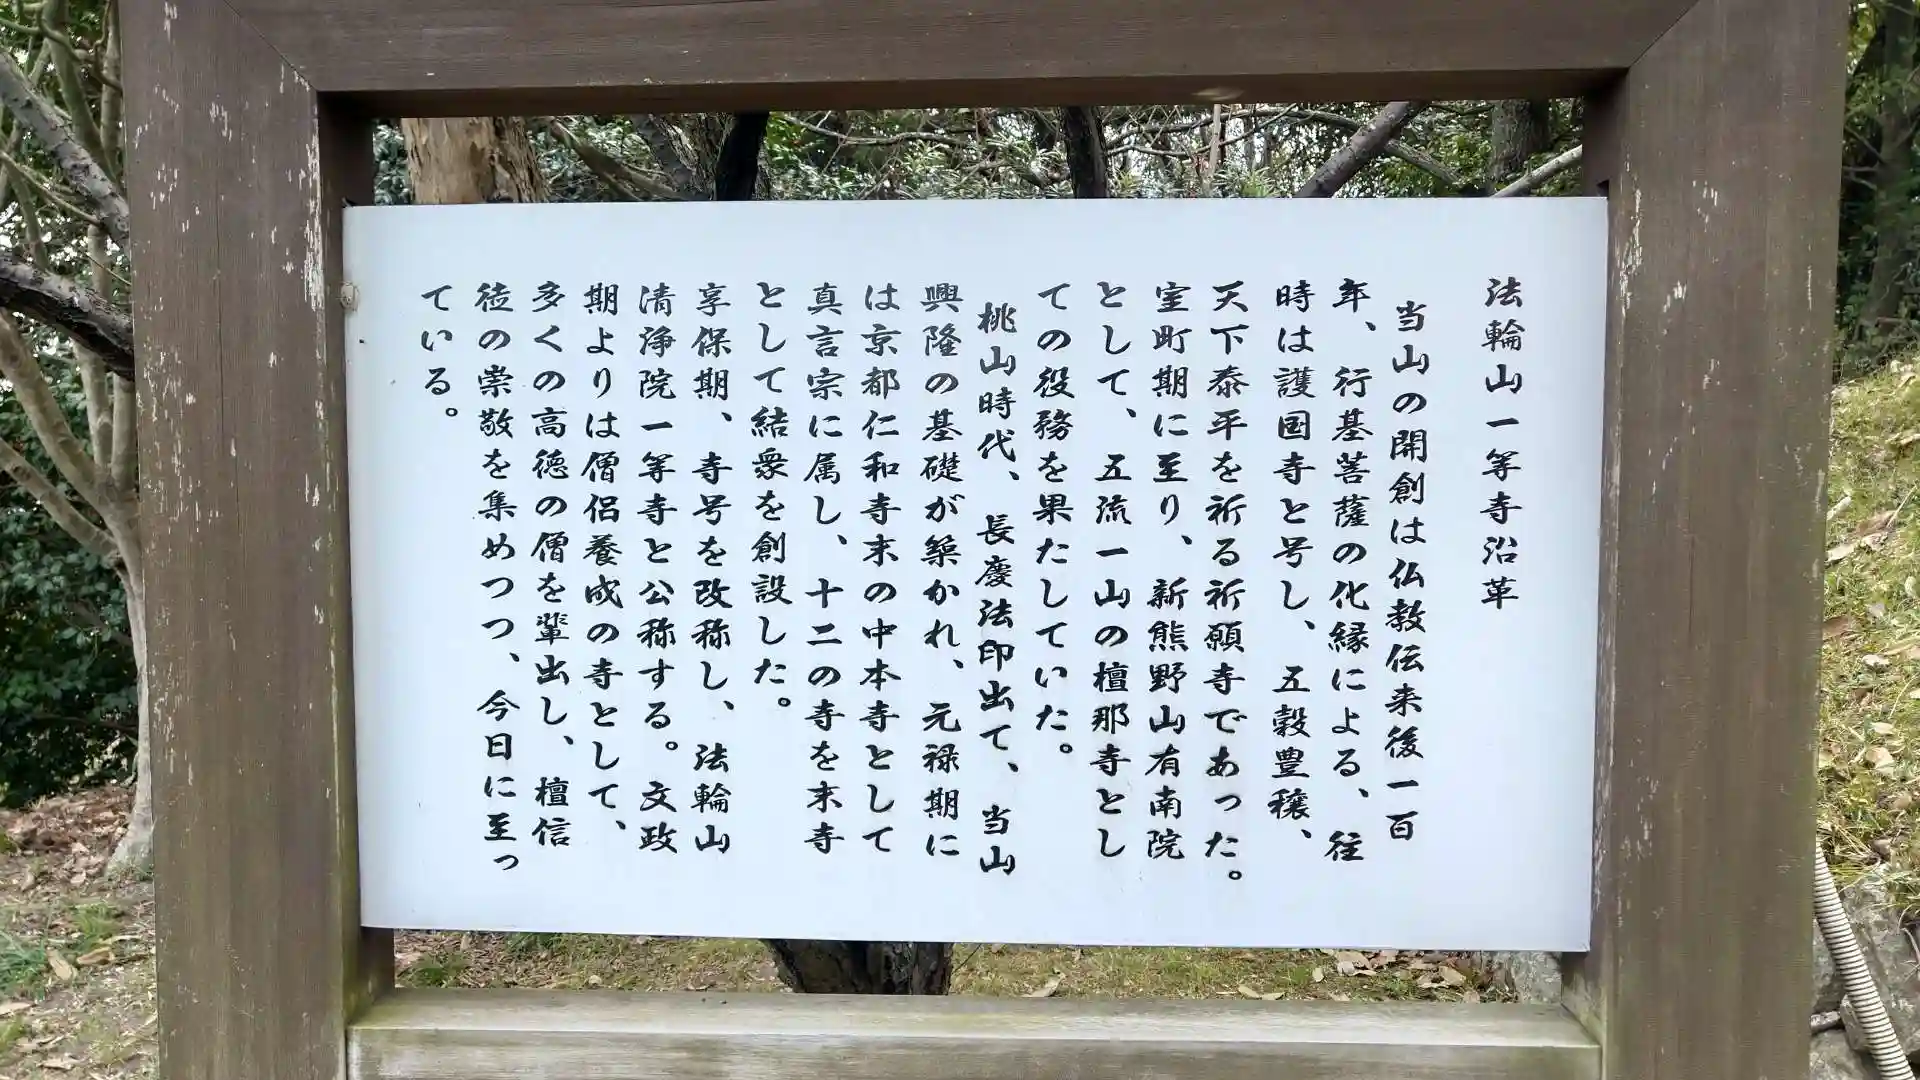 法輪山一等寺沿革
当山の開創は仏教伝来後一百
年、行基菩薩の化縁による、往
時は護国寺と号し、五穀豊穣、
天下泰平を祈る祈願寺であった。
室町期に至り、新熊野山有南院
として、五流一山の檀那寺とし
ての役務を果たしていた。
桃山時代、長慶法印出て、当山
興隆の基礎が築かれ、元禄期に
は京都仁和寺末の中本寺として
真言宗に属し、十二の寺を末寺
として結衆を創設した。
享保期、寺号を改称し、法輪山
清浄院一等寺と公称する。文政
期よりは僧侶養成の寺として、
多くの高徳の僧を輩出し、檀信
徒の崇敬を集めつつ、今日に至っ
ている。